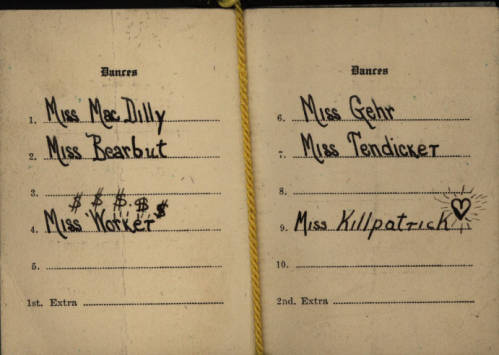 Dances
1. Miss Mac Dilly
2. Miss Bearbut
3.
$ $ $ $ $
4. Miss Worker
5.
1st. Extra
Dances
6. Miss Gehr
7. Miss Tendicker
8.
9. Miss Killpatrick
10.
2nd. Extra